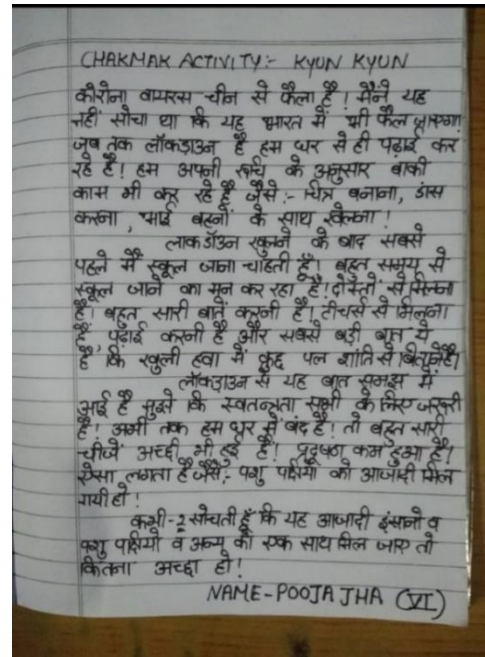 CHAKMAK ACTIVITY:- KYUN KYUN
कोरोना वायरस चीन से फैला है! मैंने यह
नहीं सोचा था कि यह भारत में भी फैल जाएगा!
जब तक लॉकडाउन है हम घर से ही पढ़ाई कर
रहे है! हम अपनी रुचि के अनुसार बाकी
काम भी कर रहे है जैसे:- चित्र बनाना, डांस
करना, भाई बहनों के साथ खेलना!
लाकडॉउन खुलने के बाद सबसे
पहले मैं स्कूल जाना चाहती हूँ! बहुत समय से
स्कूल जाने का मन कर रहा है! दोस्तों से मिलना
है! बहुत सारी बातें करनी है! टीचर्स से मिलना
है, पढ़ाई करनी है और सबसे बड़ी बात ये
है कि खुली हवा में कुछ पल शांति से बिताने है!
लॉकडाउन से यह बात समझ में
आई है मुझे कि स्वतन्त्रता सभी के लिए जरूरी
है! अभी तक हम घर में बंद है! तो बहुत सारी
चीजें अच्छी भी हुई है! प्रदूषण कम हुआ है!
ऐसा लगता है जैसे:- पशु पक्षियों को आजादी मिल
गयी हो!
कभी-2 सोचती हूँ कि यह आजादी इंसानो व
पशु पक्षियों व अन्य को एक साथ मिल जाए तो
कितना अच्छा हो!
NAME-POOJA JHA (VI)